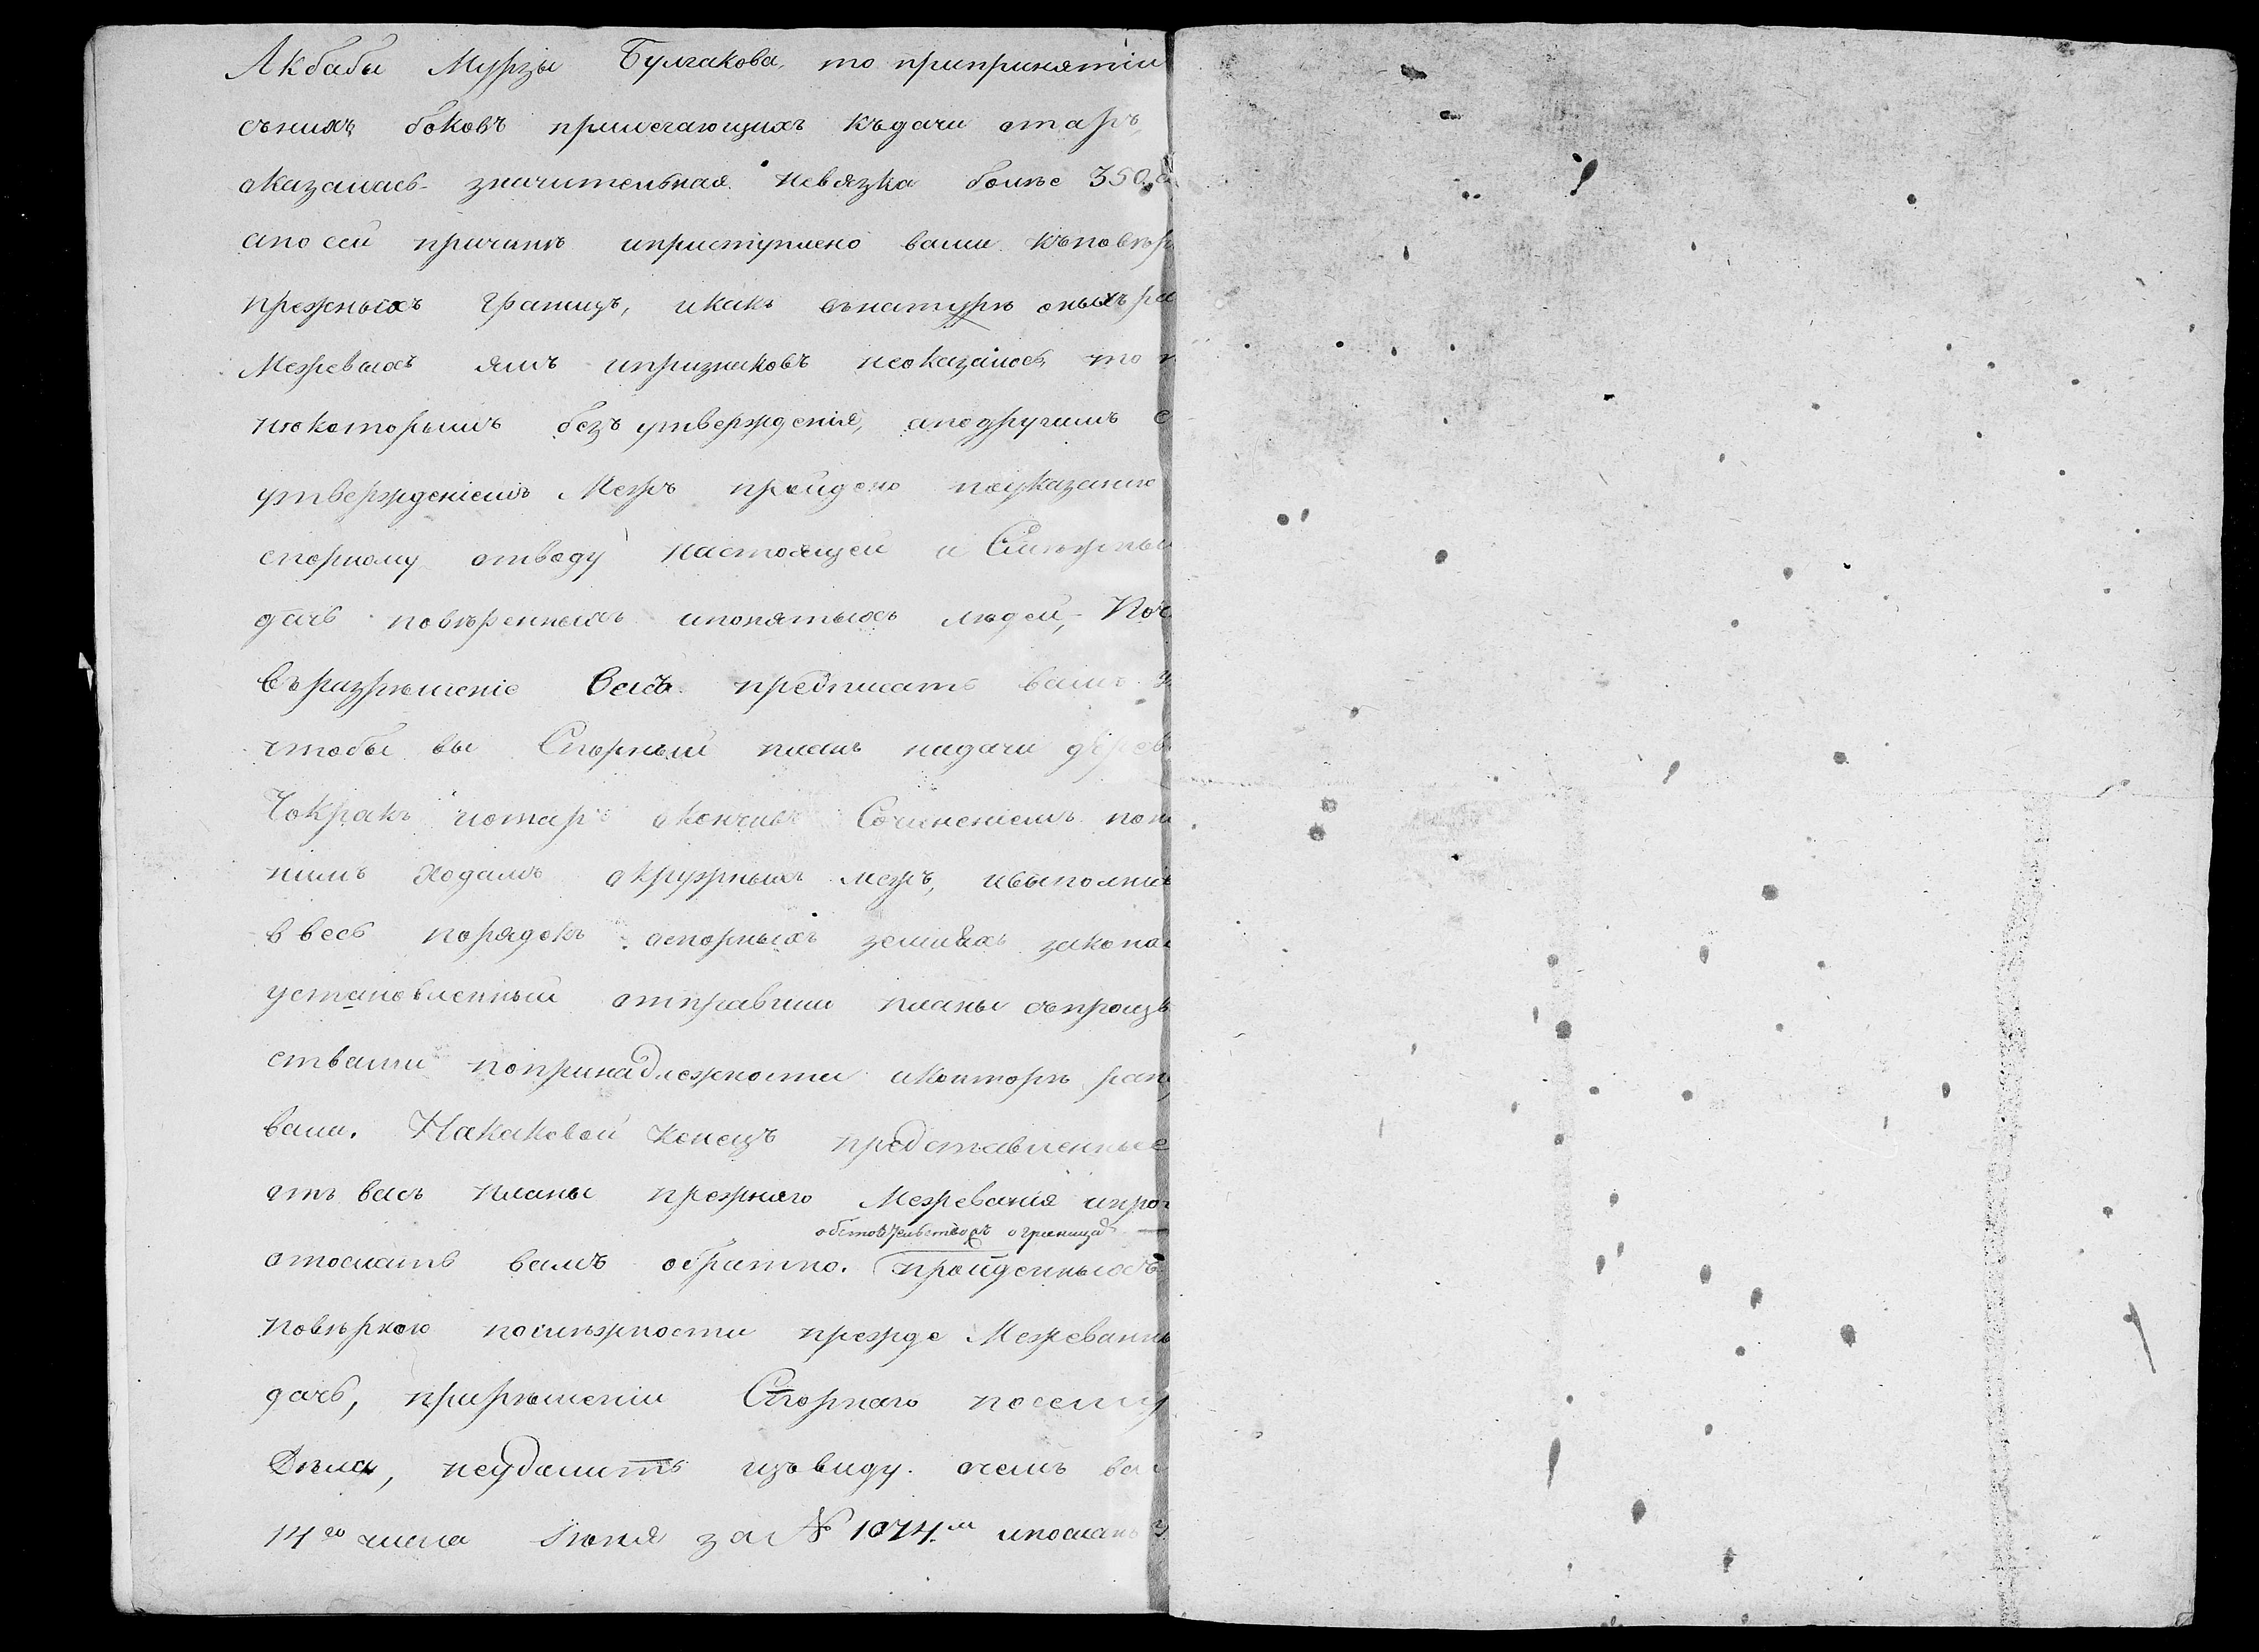 Акбабы Мурзы Булгакова, то припринятіи
съихъ боковъ прилегающихъ къдачи отаръ,
оказалась значительная невязка более 350.
апосей причинѣ иприступлено вами къповѣр
прежныхъ границъ, икакъ вънатурѣ оныхъ
Межевыхъ ямъ ипризнаковъ неоказалось, то
нѣкоторымъ безъ утвержденія, аподругимъ с
утвержденіемъ Межъ пройдено поуказанію
спорному отводу настоящей и Смѣжны
дачь повѣренныхъ ипонятыхъ людей,
Въразрѣшеніе Всего предписать вамъ
чтобы вы Спорный планъ надачи дерев
Чокракъ иотаръ окончивъ Сочиненіемъ
нимъ ходамъ окружныхъ межъ, ивыполнивъ
ввесь порядокъ оспорныхъ земляхъ закона
установленный отправили планы съпроизв
ствами попринадлежности иконторѣ рап
вали. Накаковой конецъ представленные
отъ васъ планы прежняго Межеванія
обстоятельствахъ ограницахъ
отослать вамъ обратно. пройденныхъ
повѣркою посмѣжности прежде Межеванны
дачь, прирѣшеніи Спорнаго посему
Дѣла, неудалить извиду. очемъ ва
14го числа Іюня за № 1074м ипосланъ